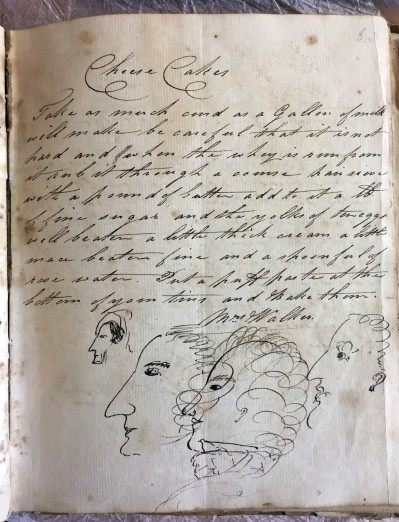 Cheese Cakes
Take as much curd as a Gallon of milk
will make be careful that it is not
hard and when the whey is run from
it rub it through a course hair sieve
with a pound of butter add to it a lb
of fine sugar and the yolks of ten eggs
well beaten a little thick cream a little
mace beaten fine and a spoonful of
rose water. Put a puff paste at the
bottom of your tins and bake them.
Mrs Walker.